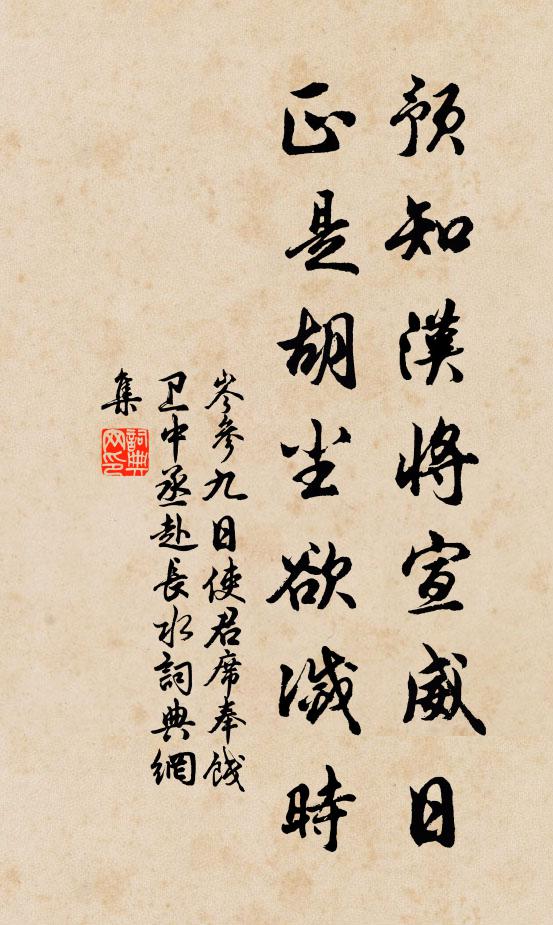 預知漢將宣威日
正是胡塵欲滅時
岑參九日使君席奉餞
卫中丞赴長水詞典網
集
詞典
网印